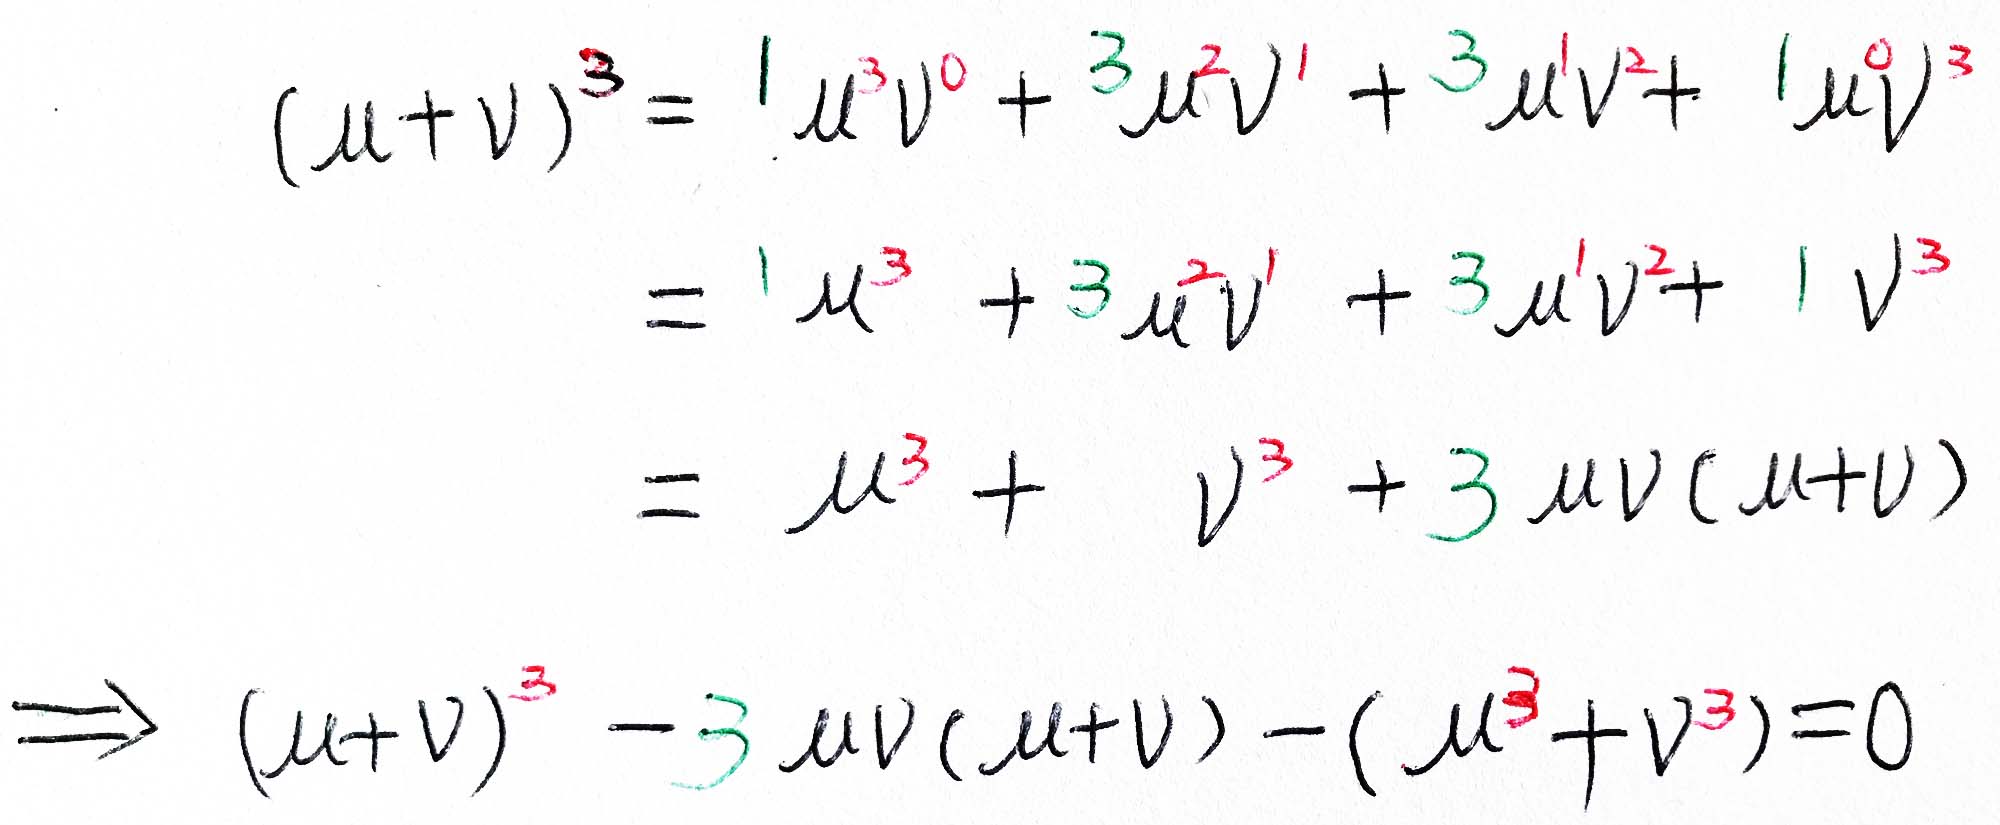 (u+v)³ = 1u³v⁰ + 3u²v¹ + 3u¹v² + 1u⁰v³
= 1u³ + 3u²v¹ + 3u¹v² + 1v³
= u³ + v³ + 3uv(u+v)
⇒ (u+v)³ - 3uv(u+v) - (u³+v³) = 0